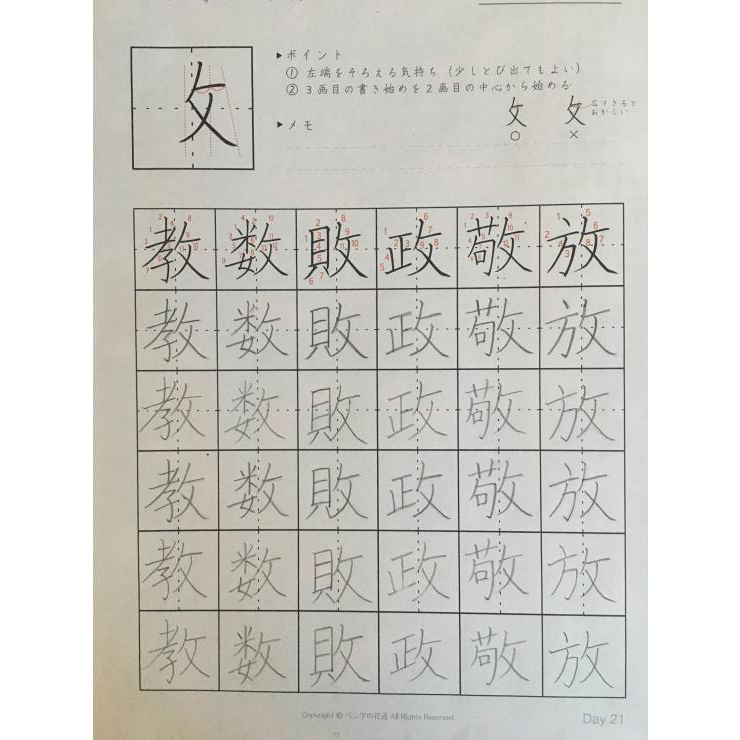 攵
▶ポイント
① 左端をそろえる気持ち（少しとび出てもよい）
② 3画目の書き始めを2画目の中心から始める
攵 攵 広すぎると
おかしい
○ ×
▶メモ
教 数 敗 政 敬 放
教 数 敗 政 敬 放
教 数 敗 政 敬 放
教 数 敗 政 敬 放
教 数 敗 政 敬 放
教 数 敗 政 敬 放
Copyright © ペン字の花道 All Rights Reserved.
Day 21